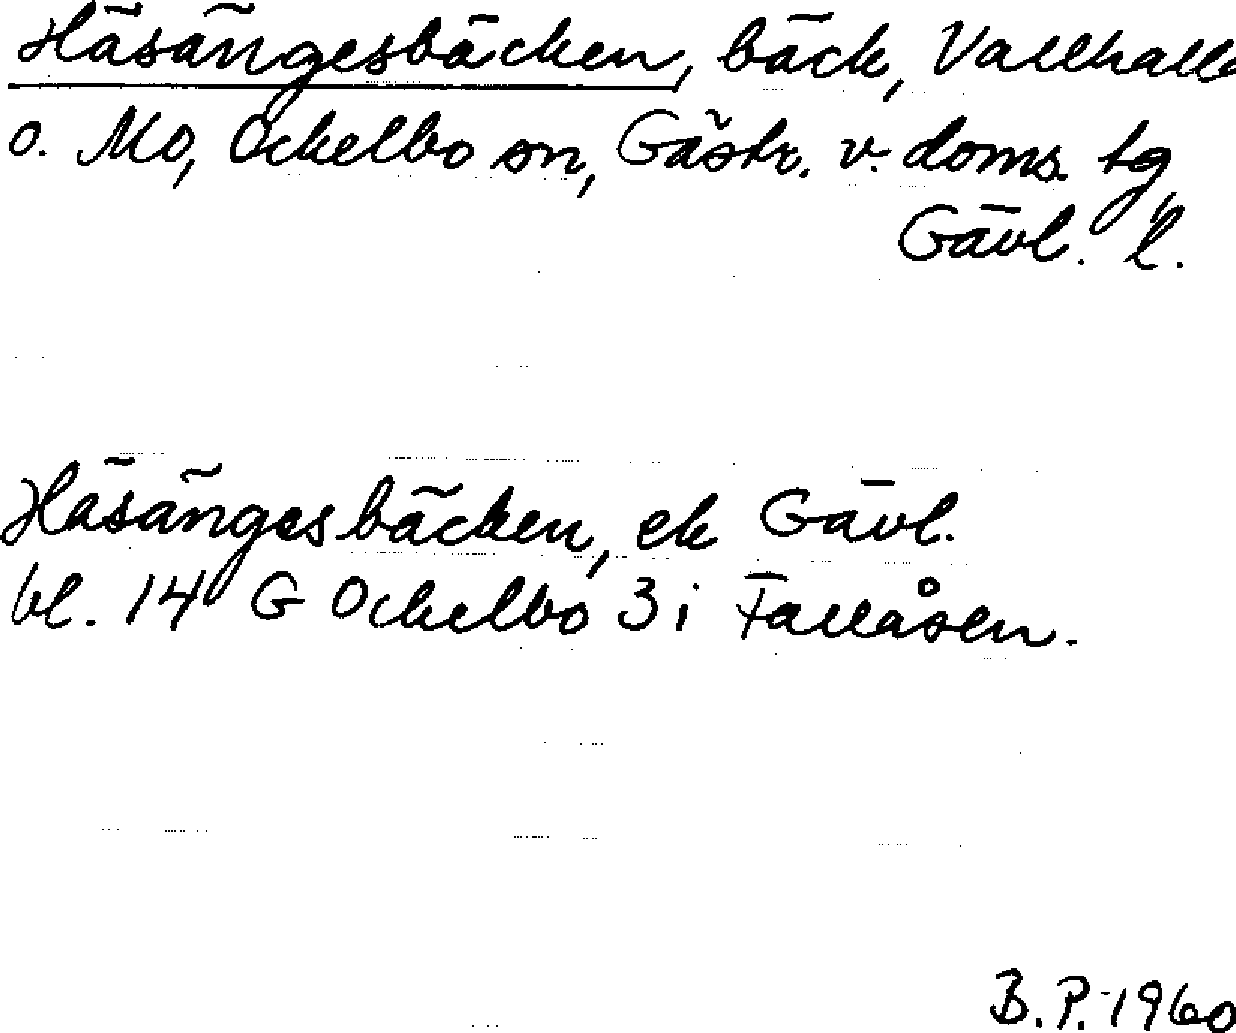 Häsängesbäcken, bäck, Vallhalla
o. Mo, Ockelbo sn, Gästr. v. doms. tg
Gävl. l.
Häsängesbäcken, ek Gävl.
bl. 14 G Ockelbo 3 i Fallåsen.
B.P. 1960